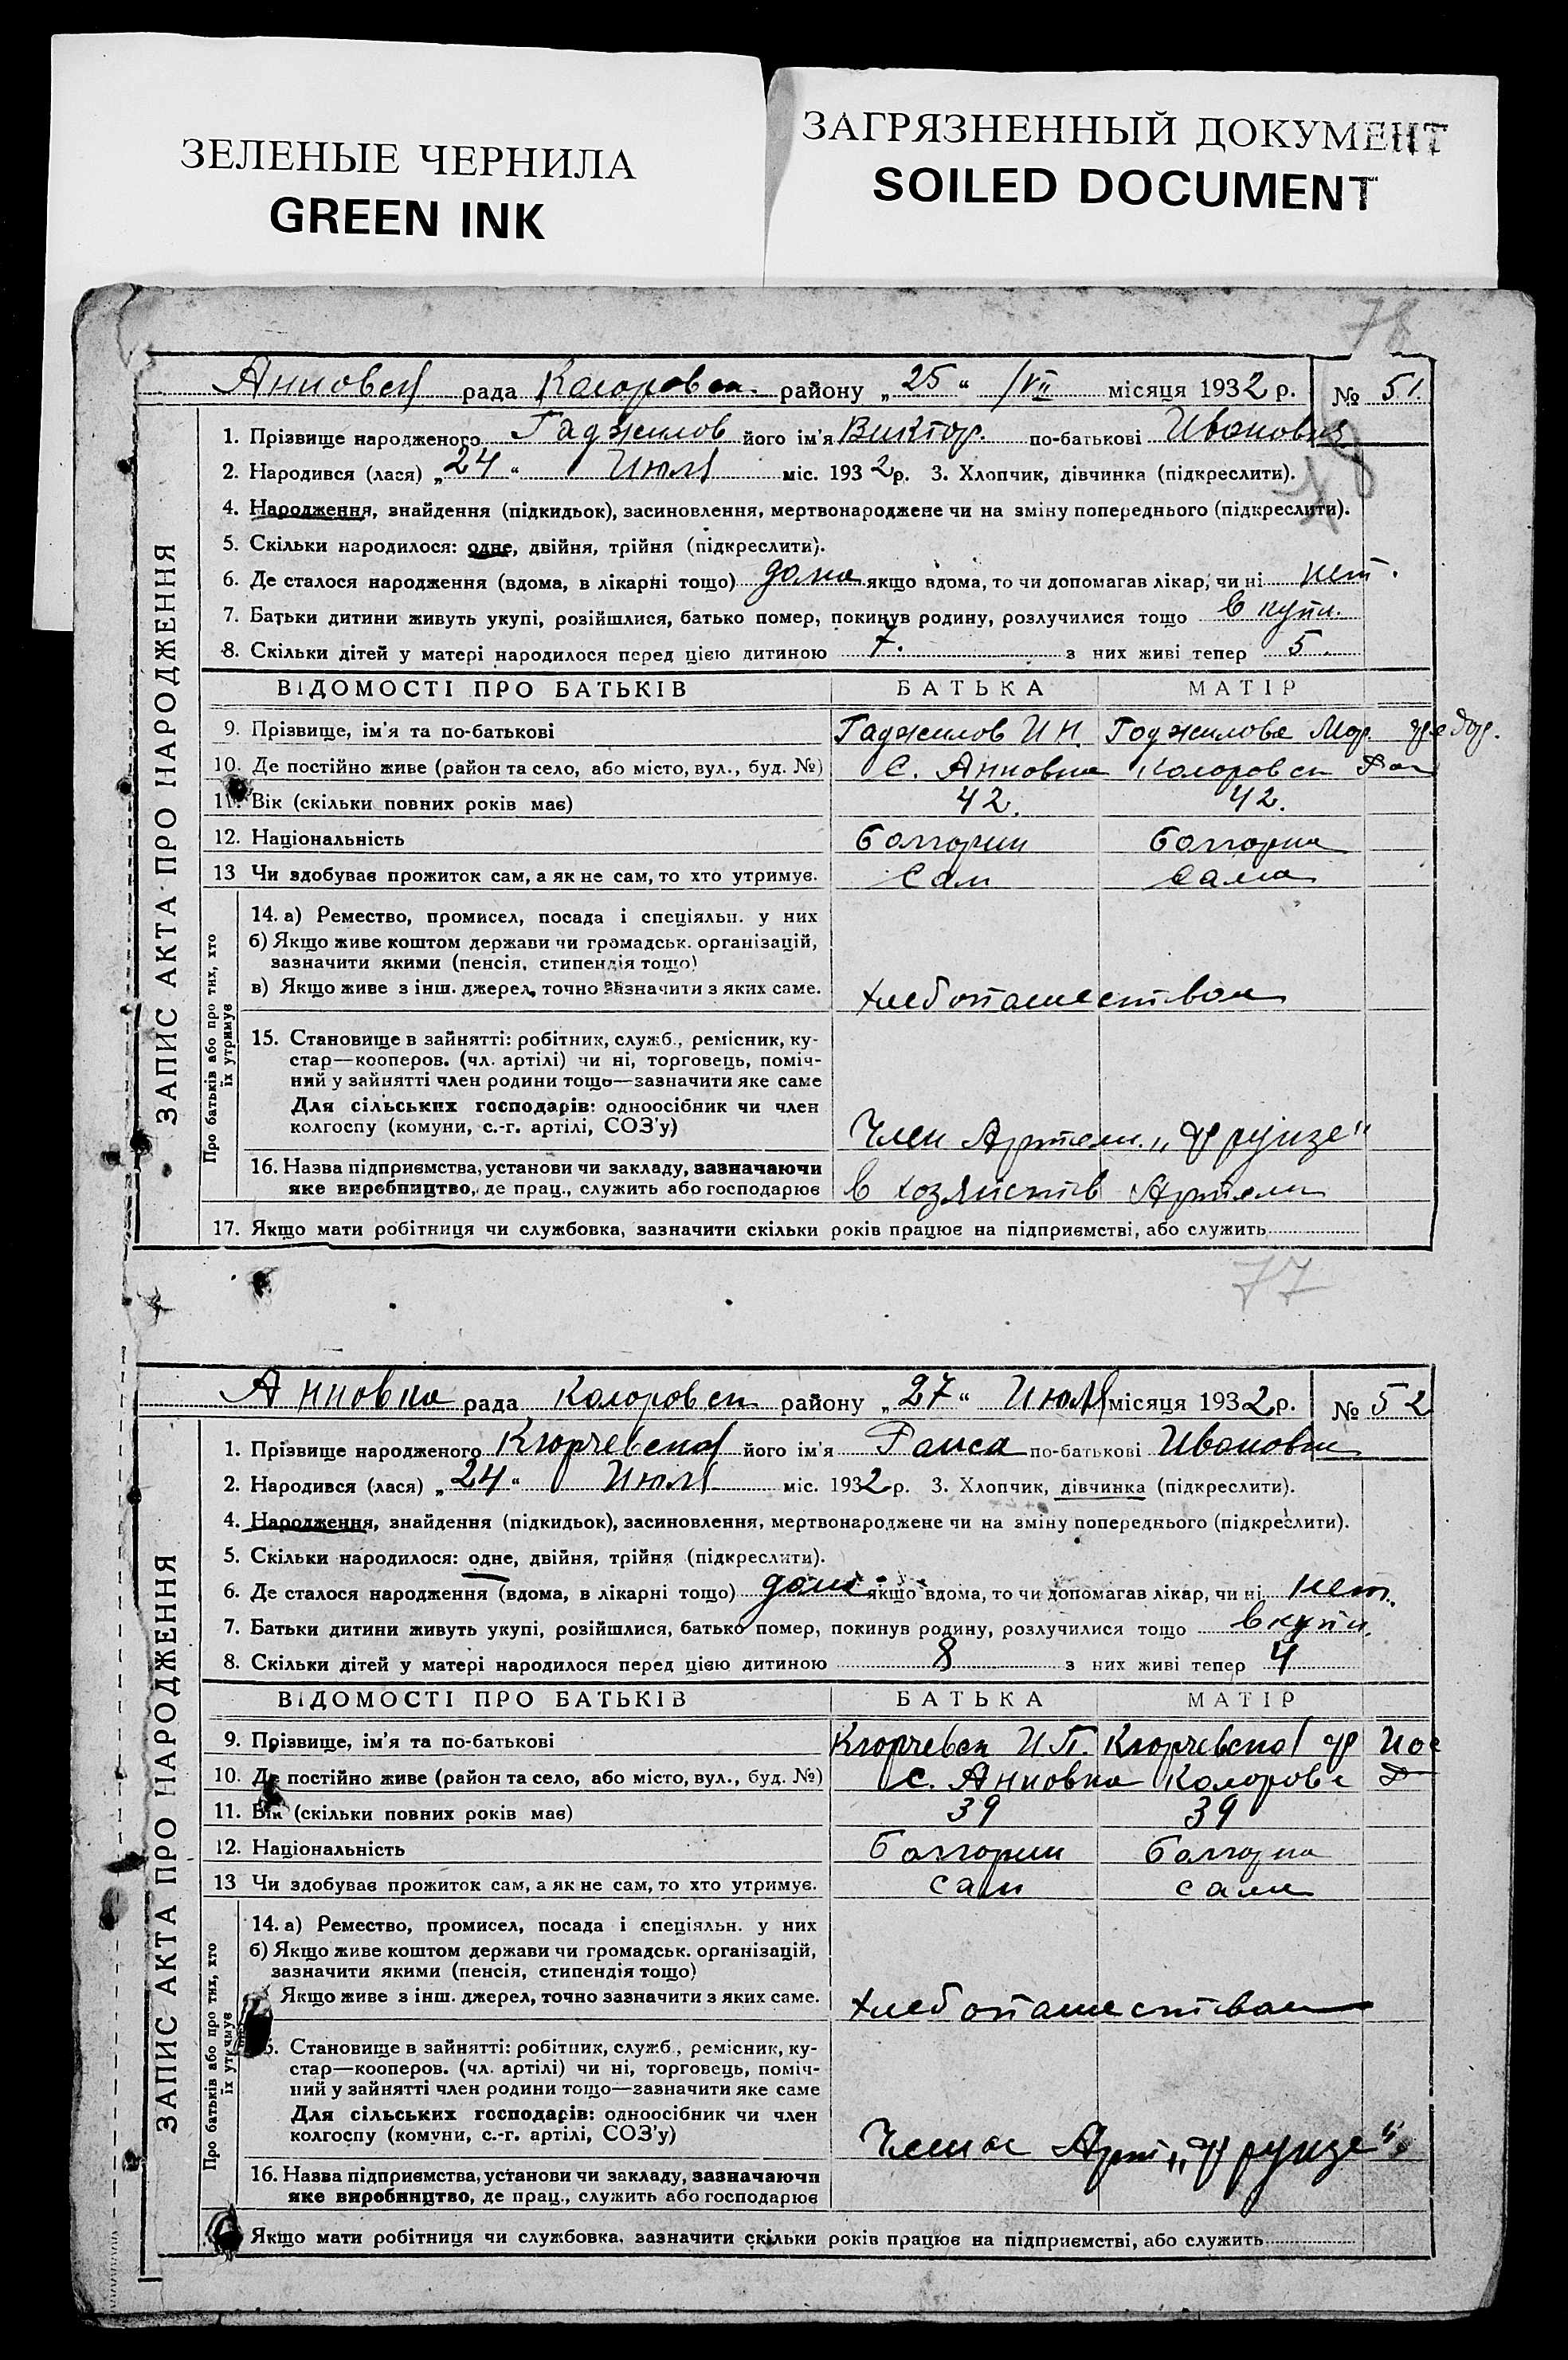 ЗЕЛЕНЫЕ ЧЕРНИЛА
GREEN INK
ЗАГРЯЗНЕННЫЙ ДОКУМЕНТ
SOILED DOCUMENT
78
Анновска рада Коларовск. району „25“ /VII місяця 1932 р. № 51.
ЗАПИС АКТА ПРО НАРОДЖЕННЯ
1. Прізвище народженого Гаджилов його ім'я Виктор. по-батькові Иванович
2. Народився (лася) „24“ Июля міс. 1932 р. 3. Хлопчик, дівчинка (підкреслити).
4. Народження, знайдення (підкидьок), засиновлення, мертвонароджене чи на зміну попереднього (підкреслити).
5. Скільки народилося: одне, двійня, трійня (підкреслити).
6. Де сталося народження (вдома, в лікарні тощо) дома якщо вдома, то чи допомагав лікар, чи ні нет.
7. Батьки дитини живуть укупі, розійшлися, батько помер, покинув родину, розлучилися тощо вкупи.
8. Скільки дітей у матері народилося перед цією дитиною 7. з них живі тепер 5.
ВІДОМОСТІ ПРО БАТЬКІВ БАТЬКА МАТІР
9. Прізвище, ім'я та по-батькові Гаджилов И Н. Гаджилова Мар. Федор.
10. Де постійно живе (район та село, або місто, вул., буд. №) С. Анновка Коларовск
11. Вік (скільки повних років має) 42. 42.
12. Національність болгарин болгарка
13 Чи здобував прожиток сам, а як не сам, то хто утримує. Сам Сама
Про батьків або про тих, хто їх утримує
14. а) Ремество, промисел, посада і спеціяльн. у них
б) Якщо живе коштом держави чи громадськ. організацій,
зазначити якими (пенсія, стипендія тощо)
в) Якщо живе з інш. джерел, точно зазначити з яких саме. хлебопашеством
15. Становище в зайнятті: робітник, служб., ремісник, ку-
стар—кооперов. (чл. артілі) чи ні, торговець, поміч-
ний у зайнятті член родини тощо—зазначити яке саме
Для сільських господарів: одноосібник чи член
колгоспу (комуни, с.-г. артілі, СОЗ'у) Член Артели. „Фрунзе“
16. Назва підприємства, установи чи закладу, зазначаючи
яке виробництво, де прац., служить або господарює в хозяйств Артели
17. Якщо мати робітниця чи службовка, зазначити скільки років працює на підприємстві, або служить
77
Анновка рада Коларовск району „27“ Июля місяця 1932 р. № 52
ЗАПИС АКТА ПРО НАРОДЖЕННЯ
1. Прізвище народженого Кюрчевская його ім'я Раиса по-батькові Ивановна
2. Народився (лася) „24“ Июля міс. 1932 р. 3. Хлопчик, дівчинка (підкреслити).
4. Народження, знайдення (підкидьок), засиновлення, мертвонароджене чи на зміну попереднього (підкреслити).
5. Скільки народилося: одне, двійня, трійня (підкреслити).
6. Де сталося народження (вдома, в лікарні тощо) дома якщо вдома, то чи допомагав лікар, чи ні нет.
7. Батьки дитини живуть укупі, розійшлися, батько помер, покинув родину, розлучилися тощо вкупи.
8. Скільки дітей у матері народилося перед цією дитиною 8 з них живі тепер 4
ВІДОМОСТІ ПРО БАТЬКІВ БАТЬКА МАТІР
9. Прізвище, ім'я та по-батькові Кюрчевск И П. Кюрчевская Ф
10. Де постійно живе (район та село, або місто, вул., буд. №) с. Анновка Коларовс
11. Вік (скільки повних років має) 39 39
12. Національність болгарин болгарка
13 Чи здобував прожиток сам, а як не сам, то хто утримує. сам сама
Про батьків або про тих, хто їх утримує
14. а) Ремество, промисел, посада і спеціяльн. у них
б) Якщо живе коштом держави чи громадськ. організацій,
зазначити якими (пенсія, стипендія тощо)
Якщо живе з інш. джерел, точно зазначити з яких саме. хлебопашеством
5. Становище в зайнятті: робітник, служб., ремісник, ку-
стар—кооперов. (чл. артілі) чи ні, торговець, поміч-
ний у зайнятті член родини тощо—зазначити яке саме
Для сільських господарів: одноосібник чи член
колгоспу (комуни, с.-г. артілі, СОЗ'у) Арт „Фрунзе“
16. Назва підприємства, установи чи закладу, зазначаючи
яке виробництво, де прац., служить або господарює
Якщо мати робітниця чи службовка, зазначити скільки років працює на підприємстві, або служить